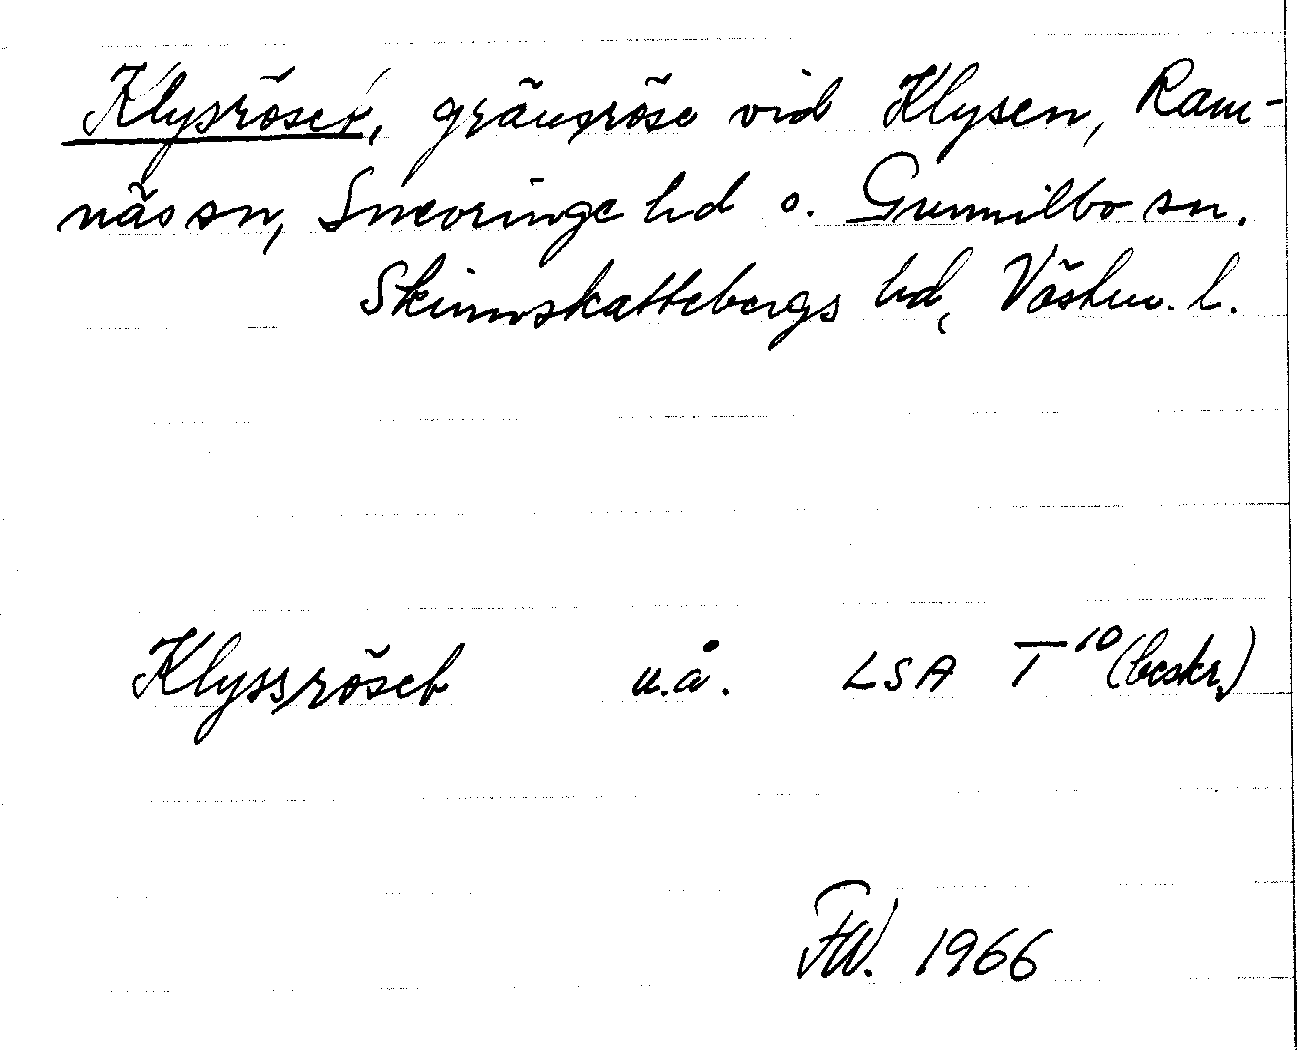 Klysröset, gränsröse vid Klysen, Ram-
näs sn, Snevringe hd o. Gunnilbo sn.
Skinnskattebergs hd, Västm. l.
Klyssröset u.å. LSA T¹⁰ (beskr.)
FW. 1966